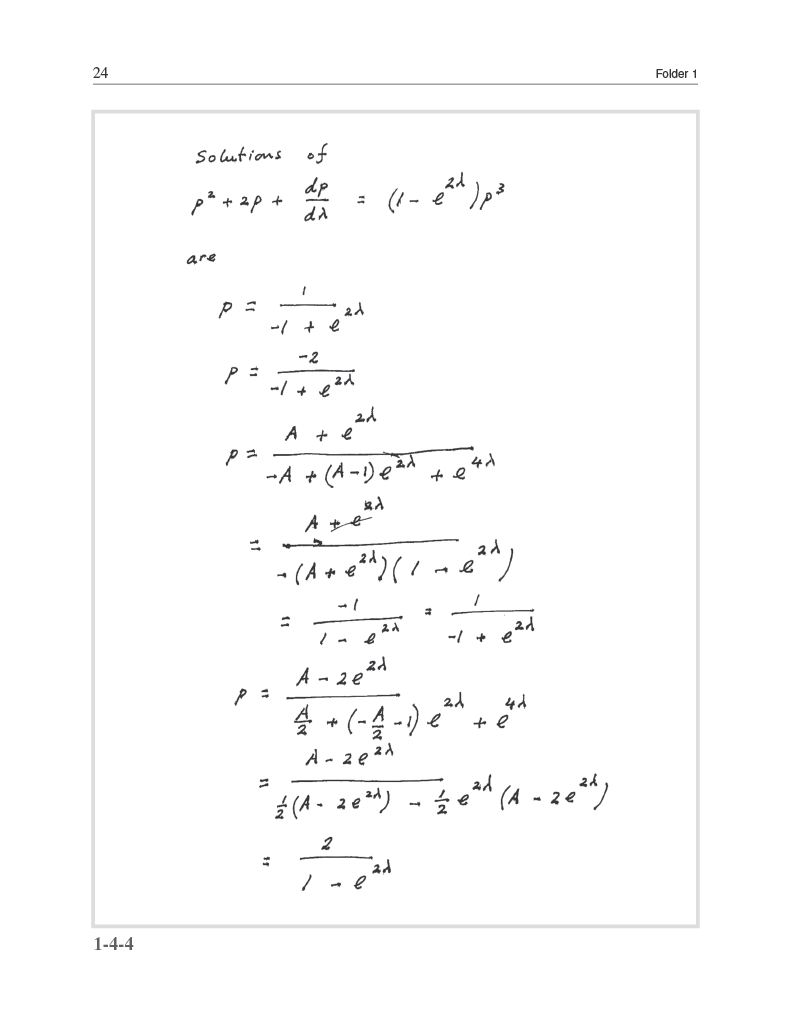 24 Folder 1
Solutions of
p² + 2p + dp/dλ = (1 - e^{2λ})p³
are
p = 1/(-1 + e^{2λ})
p = -2/(-1 + e^{2λ})
p = (A + e^{2λ})/(-A + (A-1)e^{2λ} + e^{4λ})
= (A + e^{2λ})/(-(A + e^{2λ})(1 - e^{2λ}))
= -1/(1 - e^{2λ}) = 1/(-1 + e^{2λ})
p = (A - 2e^{2λ})/(A/2 + (-A/2 - 1)e^{2λ} + e^{4λ})
= (A - 2e^{2λ})/(½(A - 2e^{2λ}) - ½e^{2λ}(A - 2e^{2λ}))
= 2/(1 - e^{2λ})
1-4-4